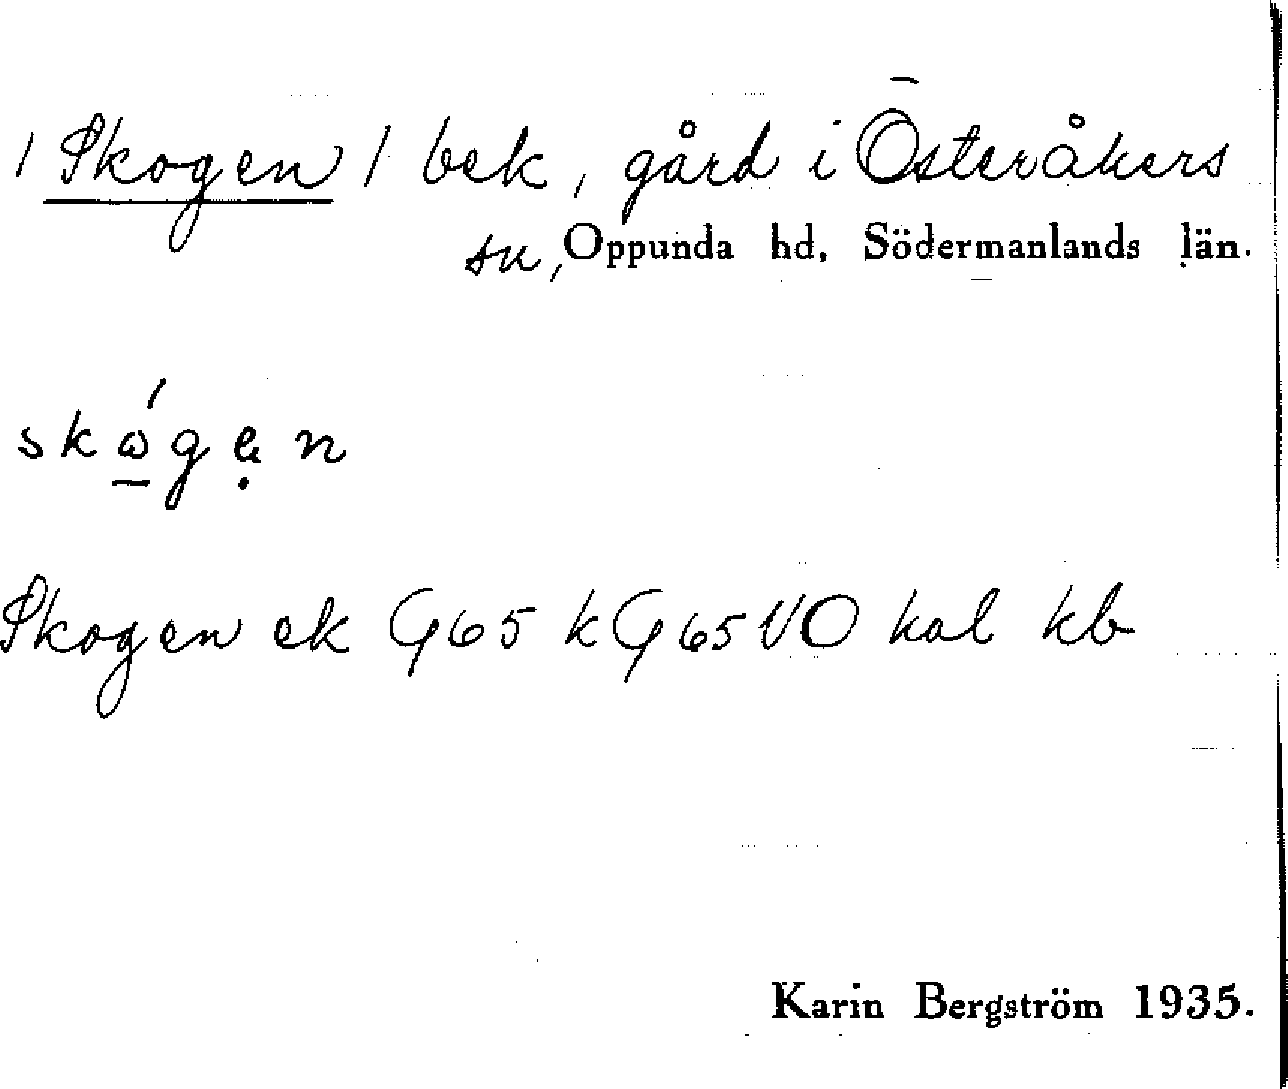 / Skogen / bek, gård i Österåkers
sn, Oppunda hd, Södermanlands län.
skógen
Skogen ek G65 kG65 VO kal kb
Karin Bergström 1935.